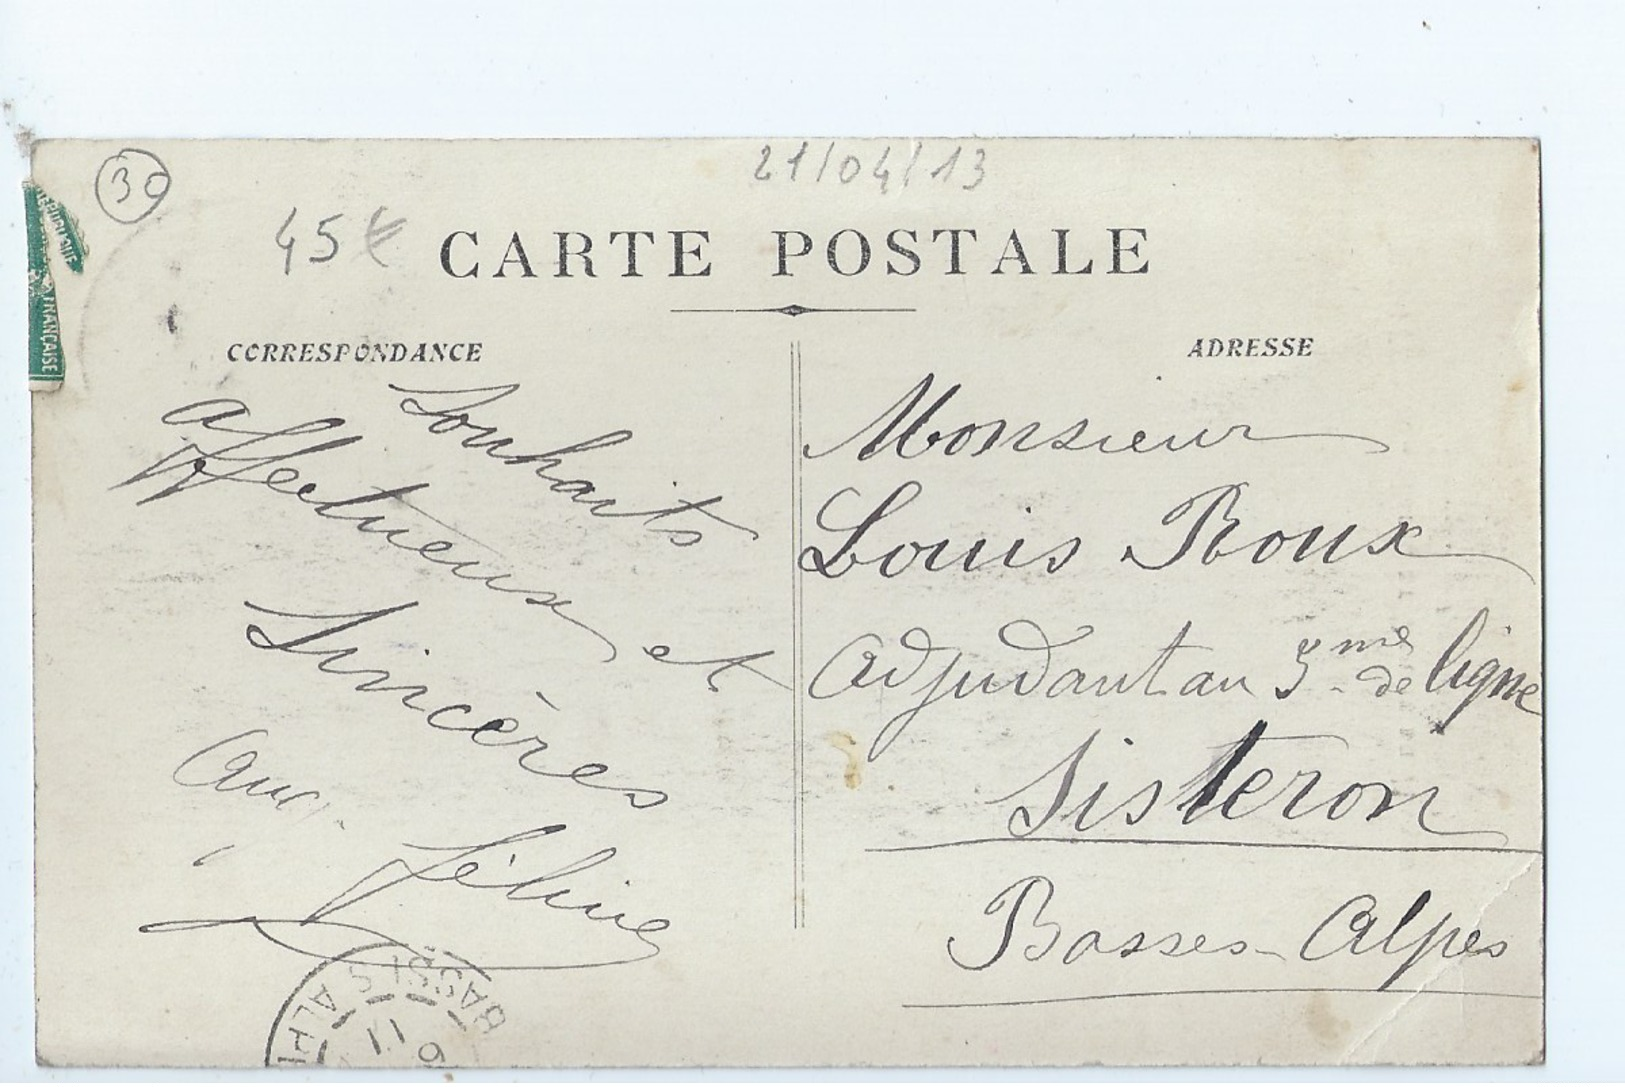 30
21/04/13
45€
CARTE POSTALE
REPUBLIQUE
FRANÇAISE
CORRESPONDANCE
Souhaits
affectueux et
Sincères
Aug.
Féline
ADRESSE
Monsieur
Louis Roux
adjudant au 3me de ligne
Sisteron
Basses-Alpes
BASSES ALP
11